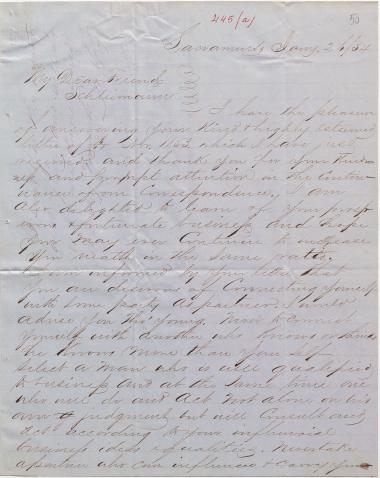 245 (a)
50
Sacramento Jany. 26/54
My Dear Friend
Schliemann
I have the pleasure
of answering your kind & highly esteemed
letter of Nov. 1853 which I have just
received and thank you for your kind
ness and prompt attention in the Contin
uance of our Correspondence, I am
also delighted to learn of your prosp
erous & fortunate business and hope
you may ever Continue to increase
your wealth in the same ratio.
I am informed by your letter that
you are desirous of Connecting yourself
with some party as partner. I would
advise you this Young. Never to connect
yourself with another who knows or thinks
he knows more than yourself
select a man who is well qualified
to business and at the same time one
who will do and Act not alone on his
own judgment but will Consult and
act according to your influencial
business ideas & qualities. Never take
a partner who can influence & carry your